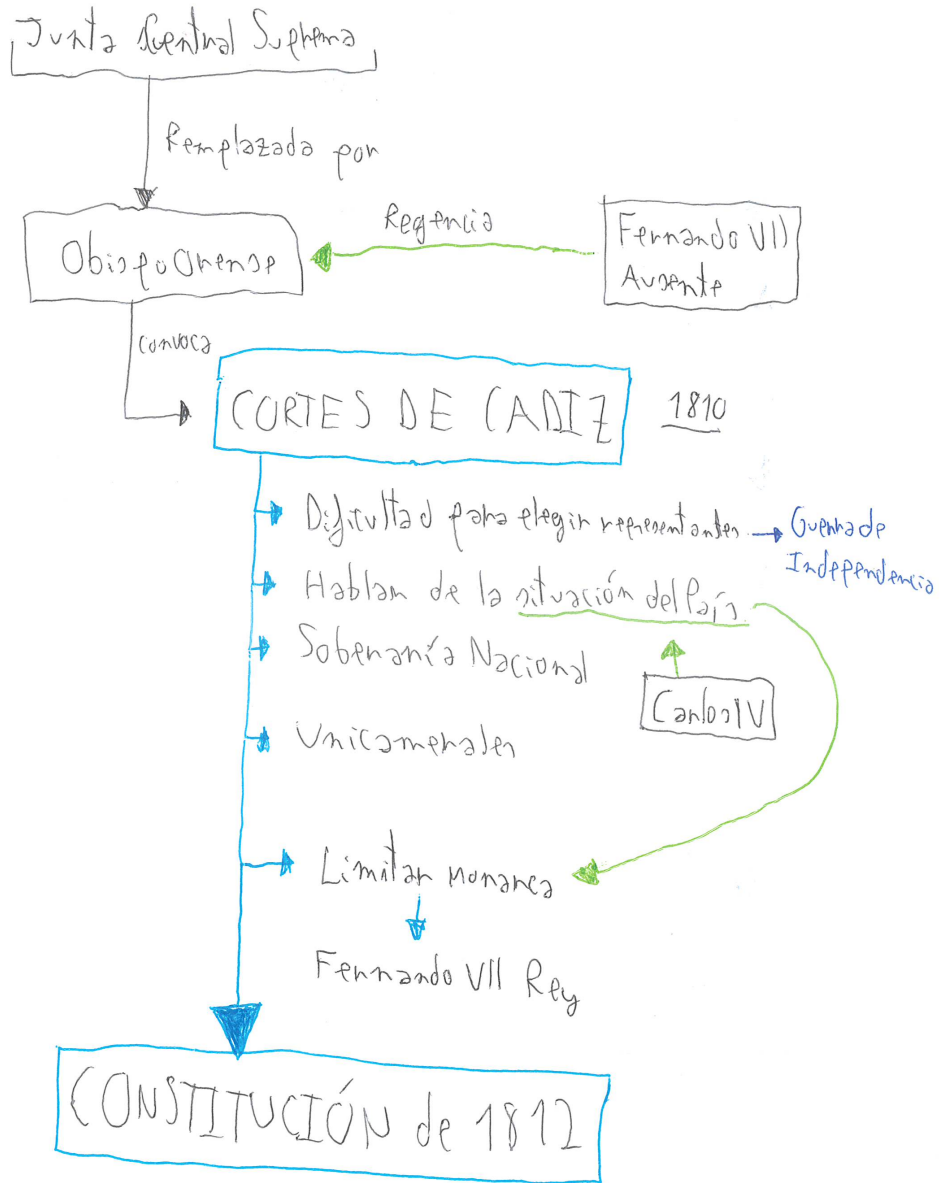 Junta Central Suprema
Remplazada por
Obispo Orense
Regencia
Fernando VII
Ausente
convoca
CORTES DE CADIZ
1810
Dificultad para elegir representantes
Guerra de
Independencia
Hablan de la situación del País
Soberanía Nacional
Carlos IV
Unicamerales
Limitar Monarca
Fernando VII Rey
CONSTITUCIÓN de 1812